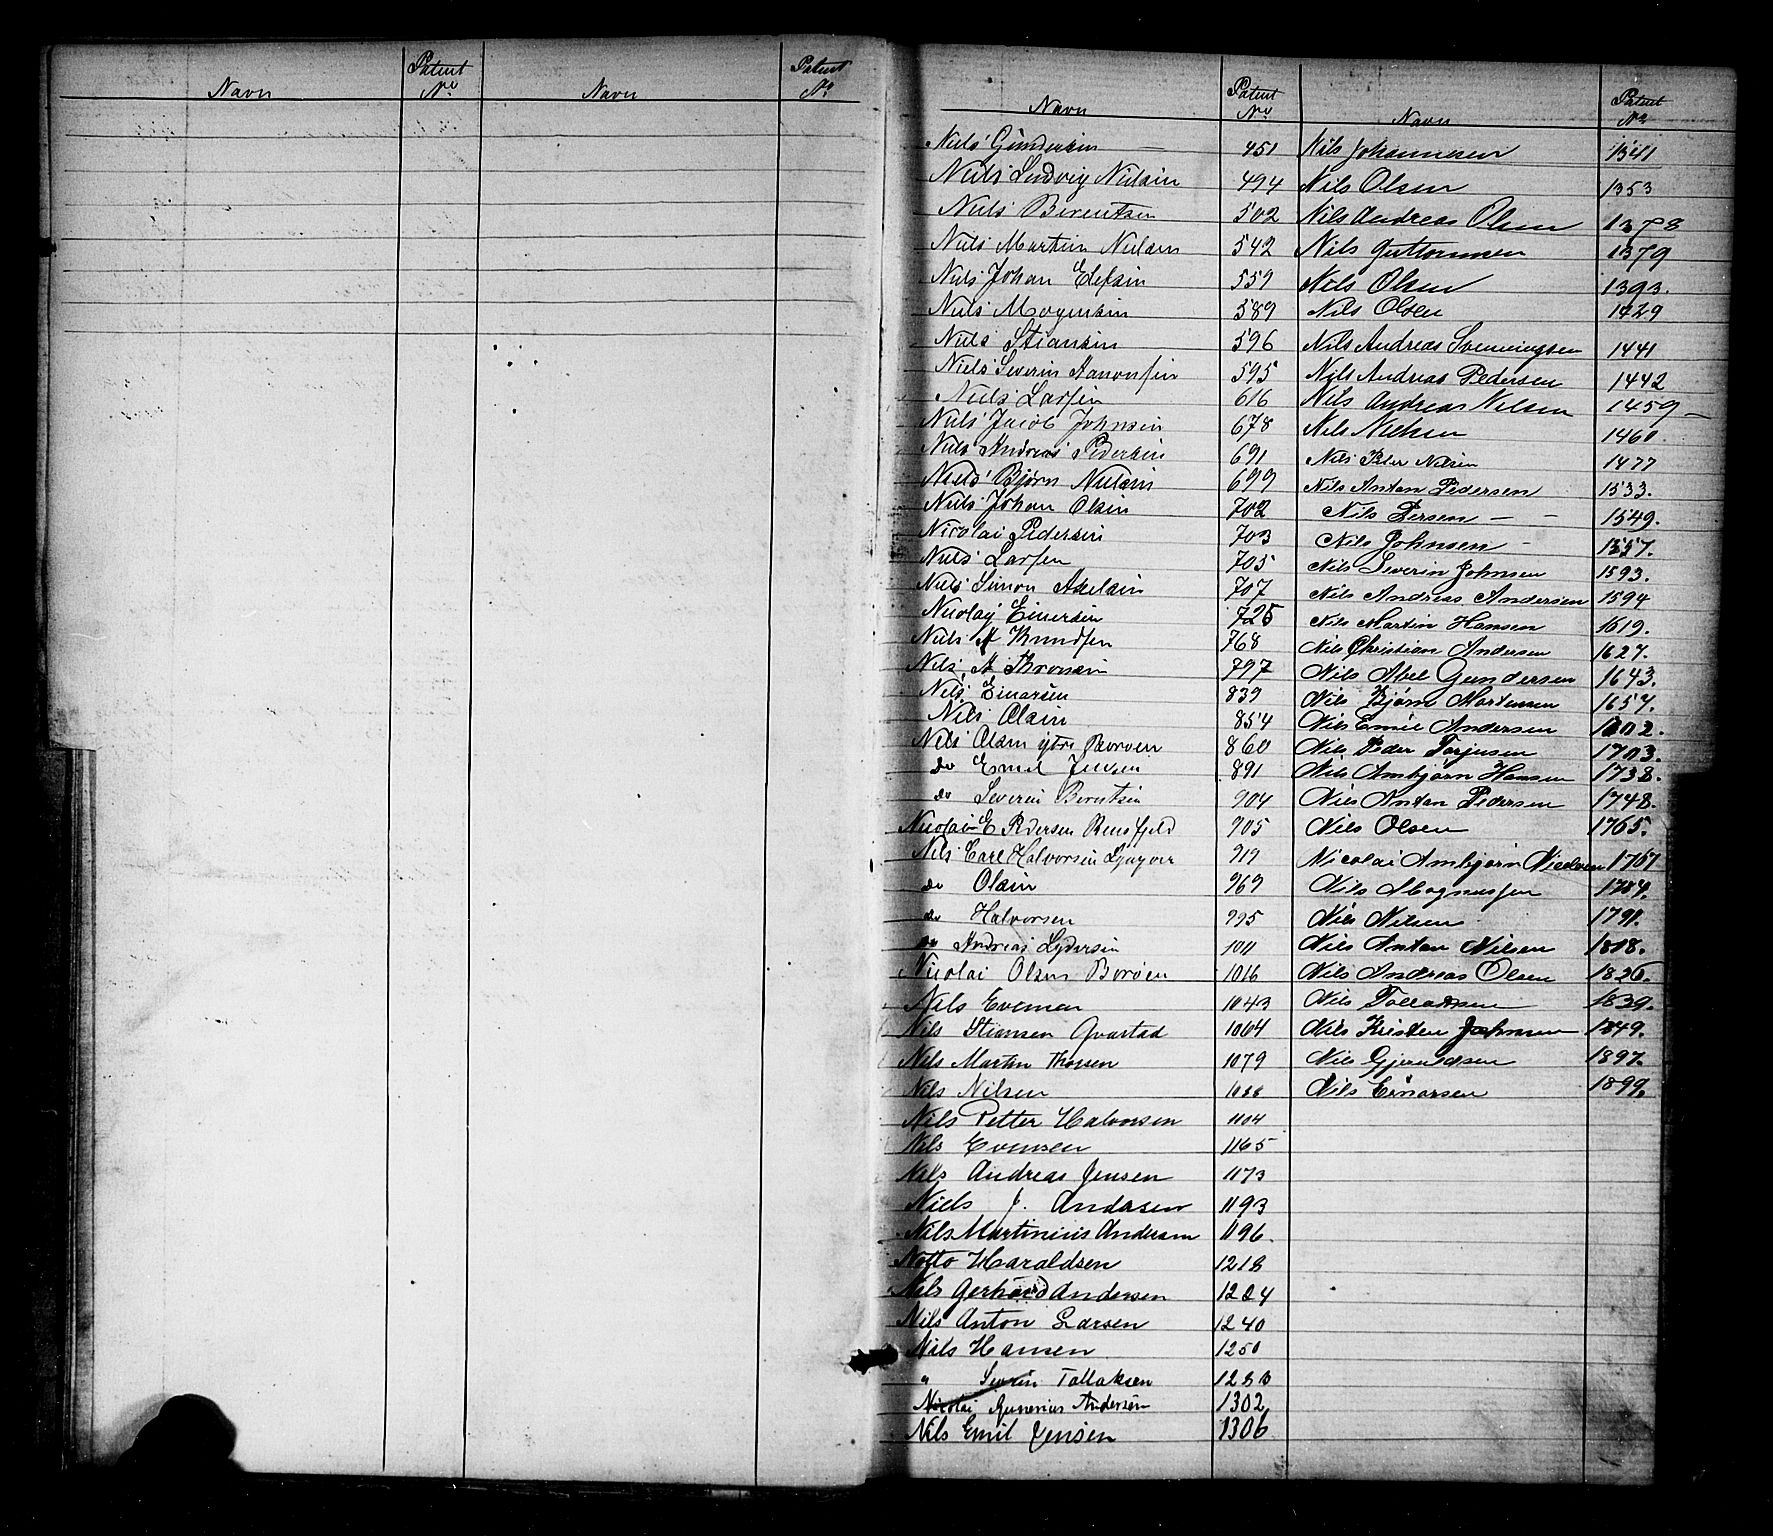 Navn Patent No Navn Patent No
Navn Patent No
Niels Gundersen — 451
Niels Ludvig Nielsen 494
Niels Berentsen 502
Niels Martin Nielsen 542
Niels Johan Elefsen 559
Niels Mogensen 589
Niels Stiansen 596
Niels Severin Aanonsen 595
Niels Larsen 616
Niels Jacob Johnsen 678
Niels Andreas Pedersen 691
Niels Bjørn Nielsen 699
Niels Johan Olsen 702
Nicolai Pedersen 703
Niels Larsen 705
Niels Simon Axelsen 707
Nicolay Einersen 725
Niels A Knudsen 768
Nils A Thronsen 797
Nils Einarsen 839
Nils Olsen 854
Nils Olsen ytre Borøen 860
do Emil Jensen 891
do Severin Berntsen 904
Nicolai E Pedersen 905
Nils Carl Halvorsen 919
do Olsen 969
do Halvorsen 995
do Andreas Lydersen 1011
Nicolai Olsen Borøen 1016
Nils Evensen 1043
Nils Stiansen Qvastad 1064
Nils Martin Thorsen 1079
Nils Nilsen 1088
Nils Petter Halvorsen 1104
Nils Evensen 1165
Nils Andreas Jensen 1173
Niels J. Andersen 1193
Nils Martinius Andersen 1196.
Notto Haraldsen 1218
Nils Gerhard Andersen 1224
Nils Anton Larsen 1240
Nils Hansen 1250
" Severin Tallaksen 1280
Nicolai Gunerius Andersen 1302
Nils Emil Jensen 1306
Navn Patent No
Nils Johannesen 1341
Nils Olsen 1353
Nils Andreas Olsen 1378
Nils Guttormsen 1379
Nils Olsen 1393.
Nils Olsen 1429
Nils Andreas Svenningsen 1441
Nils Andreas Pedersen 1442
Nils Andreas Nilsen 1459 —
Nils Nielsen 1460
Nils Peter Nilsen 1477
Nils Anton Pedersen 1533.
Nils Persen — — 1549.
Nils Johnsen - 1557.
Nils Severin Johnsen 1593.
Nils Andreas Andersen 1594
Nils Martin Hansen 1619.
Nils Christian Andersen 1627.
Nils Abel Gundersen 1643.
Nils Bjørn Mortensen 1657.
Nils Emil Andersen
Nils Peder Torjusen 1703.
Nils Ambjørn Hansen 1738.
Nils Anton Pedersen 1748.
Nils Olsen 1765.
Nicolai Ambjørn 1767
Nils Magnussen 1784.
Nils Nilsen 1791.
Nils Anton Nilsen 1818.
Nils Andreas Olsen 1826.
Nils Tallaksen 1839.
Nils Kristen Johnsen 1849.
Nils Gjeruldsen 1897.
Nils Einarsen 1899.